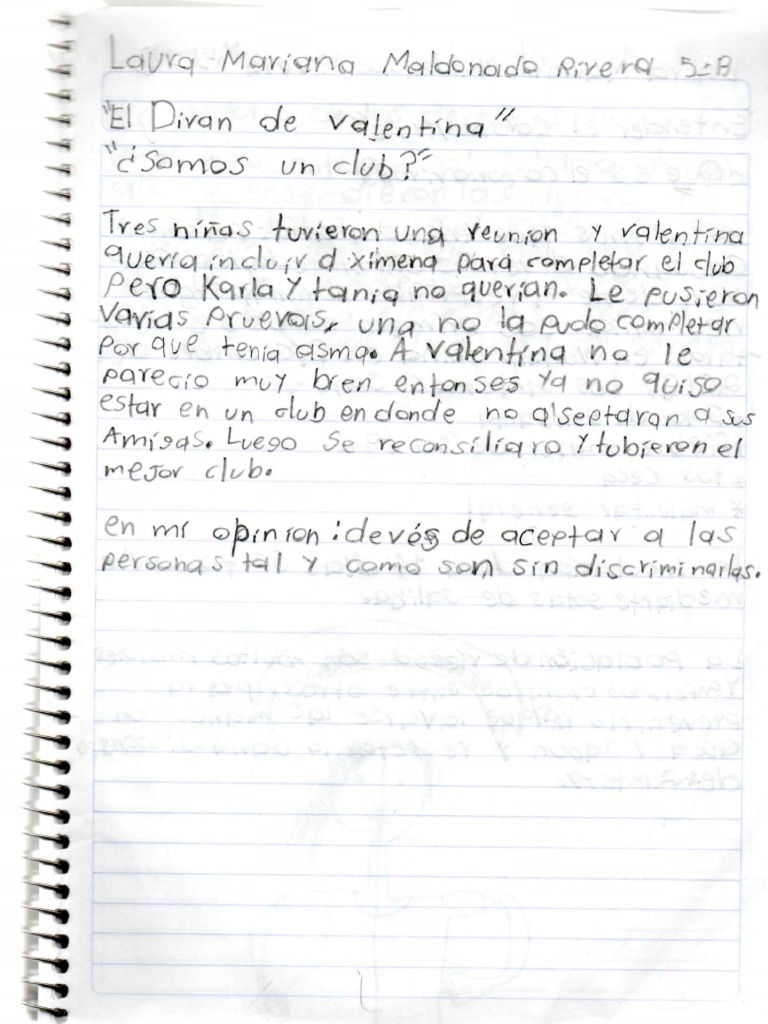 Laura Mariana Maldonado Rivera 5-B
"El Divan de valentina"
"¿Somos un club?"
Tres niñas tuvieron una reunion y valentina
queria incluir a ximena para completar el club
Pero Karla y tania no querian. Le pusieron
varias pruevas, una no la pudo completar
por que tenia asma. A valentina no le
parecio muy bien entonses ya no quiso
estar en un club en donde no a septaran a sus
Amigas. Luego se reconsiliaro y tubieron el
mejor club.
en mi opinion: devés de aceptar a las
personas tal y como son sin discriminarlas.